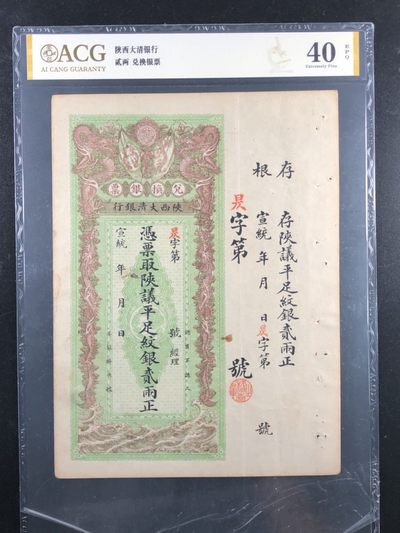 ACG
AI CANG GUARANTY
陝西大清银行
贰两 兑换银票
40
EPQ
Extremely Fine
兌換銀票
陝西大清銀行
字第 號 經理
憑票取陝議平足紋銀貳兩正
宣統 年 月 日
存根
存陝議平足紋銀貳兩正
宣統 年 月 日 字第 號
字第 號